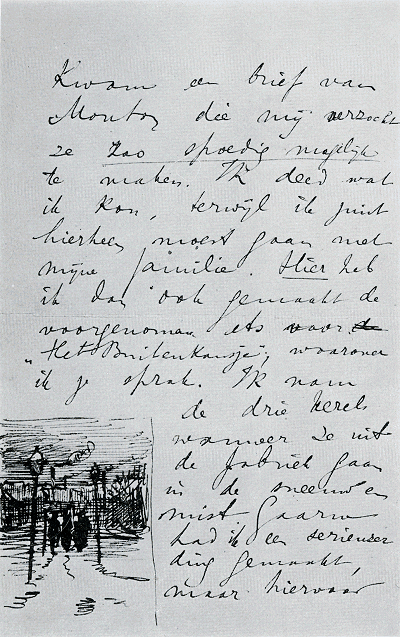 Kwam een brief van
Mouton die mij verzocht
ze zoo spoedig mogelijk
te maken. Ik deed wat
ik kon, terwijl ik juist
hierheen moest gaan met
mijne familie. Hier heb
ik dan ook gemaakt de
voorgenomen ets voor de
„Het Buitenkansje", waarover
ik je sprak. Ik nam
de drie kerels
wanneer ze uit
de fabriek gaan
in de sneeuw en
mist. Gaarne
had ik een serieuser
ding gemaakt,
maar hiervoor